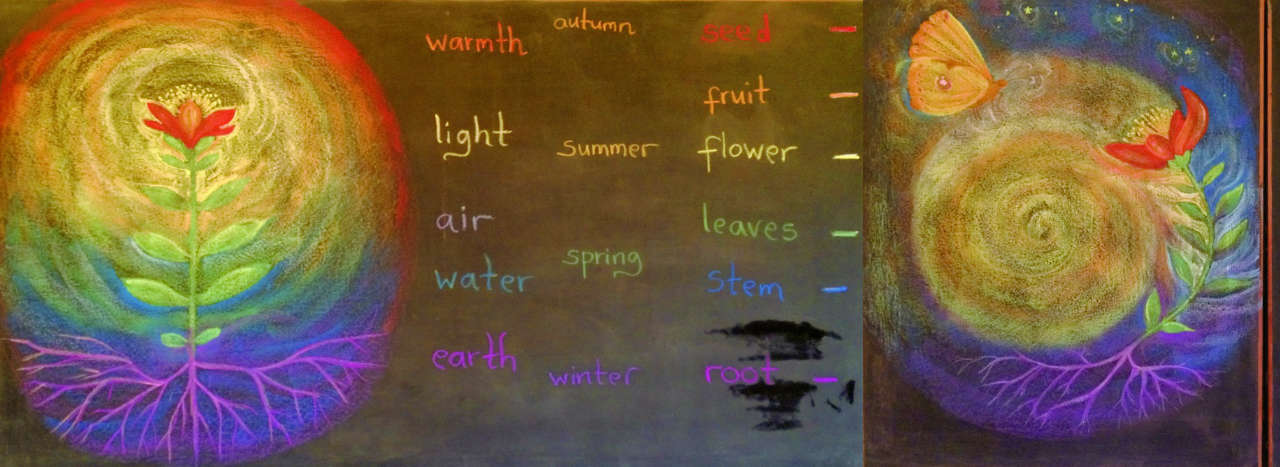 warmth autumn seed
fruit
light summer flower
air leaves
water spring stem
earth winter root